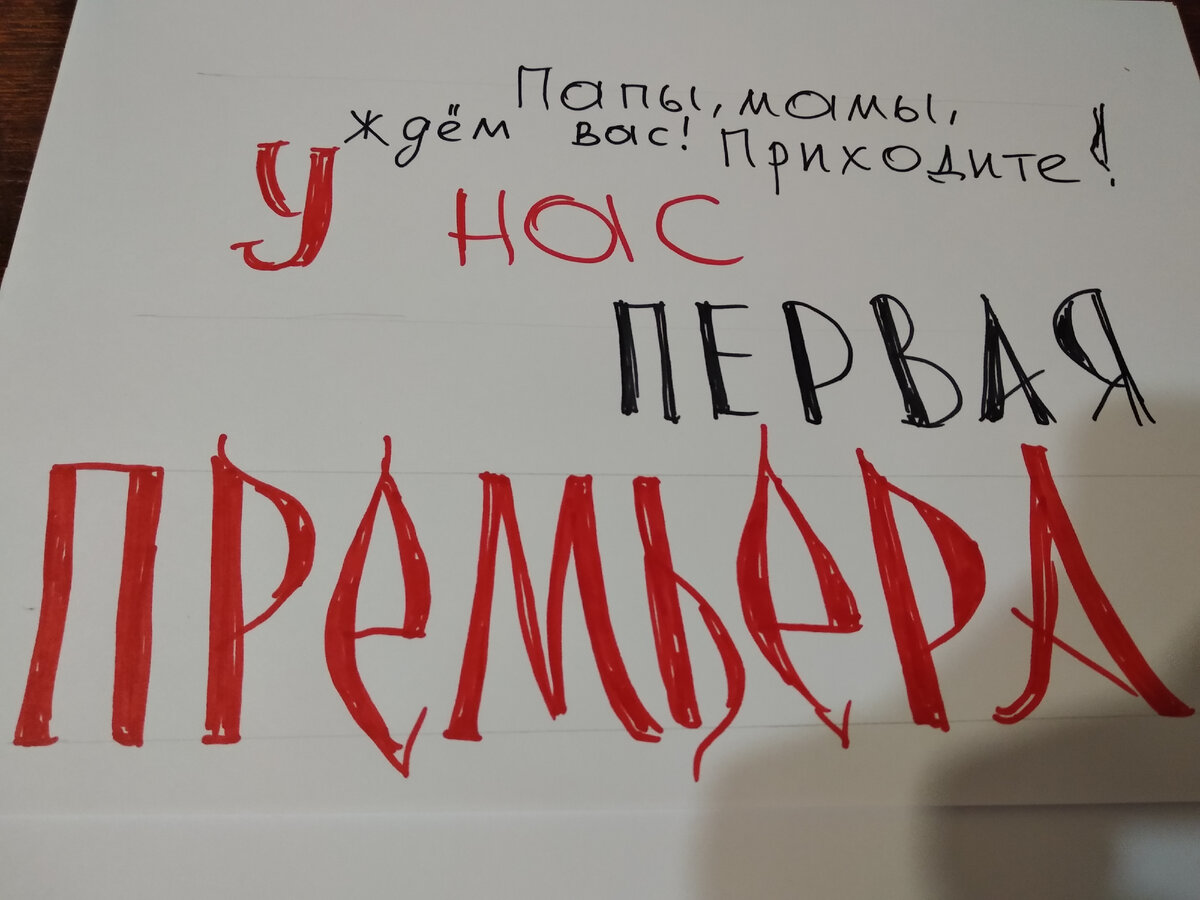 Папы, мамы,
ждём вас! Приходите!
У нас
ПЕРВАЯ
ПРЕМЬЕРА